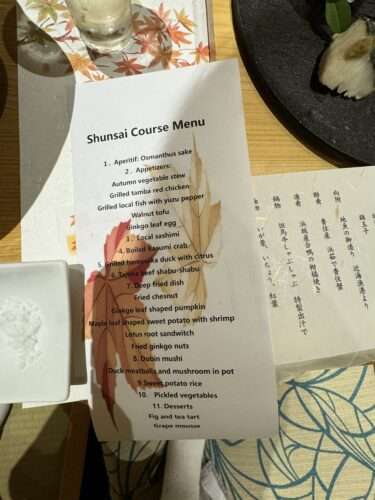 Shunsai Course Menu
1. Aperitif: Osmanthus sake
2. Appetizers:
Autumn vegetable stew
Grilled tamba red chicken
Grilled local fish with yuzu pepper
Walnut tofu
Ginkgo leaf egg
3. Local sashimi
4. Boiled kasumi crab
5. Grilled hamasaka duck with citrus
6. Tajima beef shabu-shabu
7. Deep fried dish
Fried chesnut
Ginkgo leaf shaped pumpkin
Maple leaf shaped sweet potato with shrimp
Lotus root sandwitch
Fried ginkgo nuts
8. Dobin mushi
Duck meatballs and mushroom in pot
9 Sweet potato rice
10. Pickled vegetables
11. Desserts
Fig and tea tart
Grape mousse
錦玉子
向附 地魚の御造り 近海漁港より
酢肴 香住蟹 浜茹で香住蟹
温肴 浜坂産合鴨の柑橘焼き
鍋物 但馬牛しゃぶしゃぶ 特製出汁で
いが栗、いちょう、紅葉